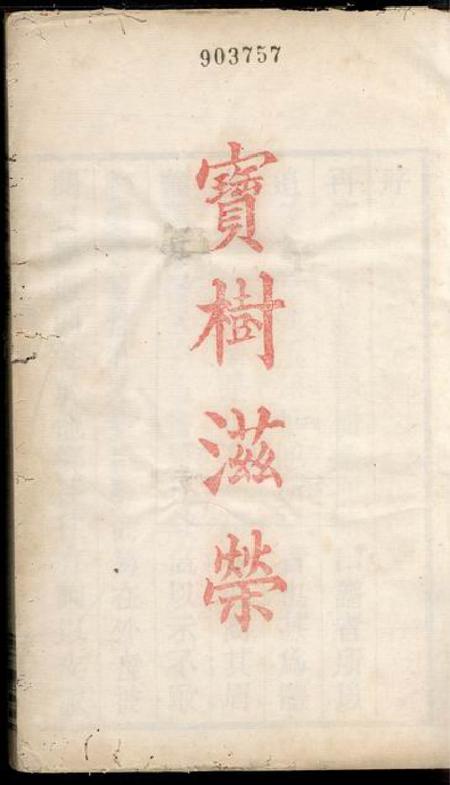 903757
寶樹滋榮